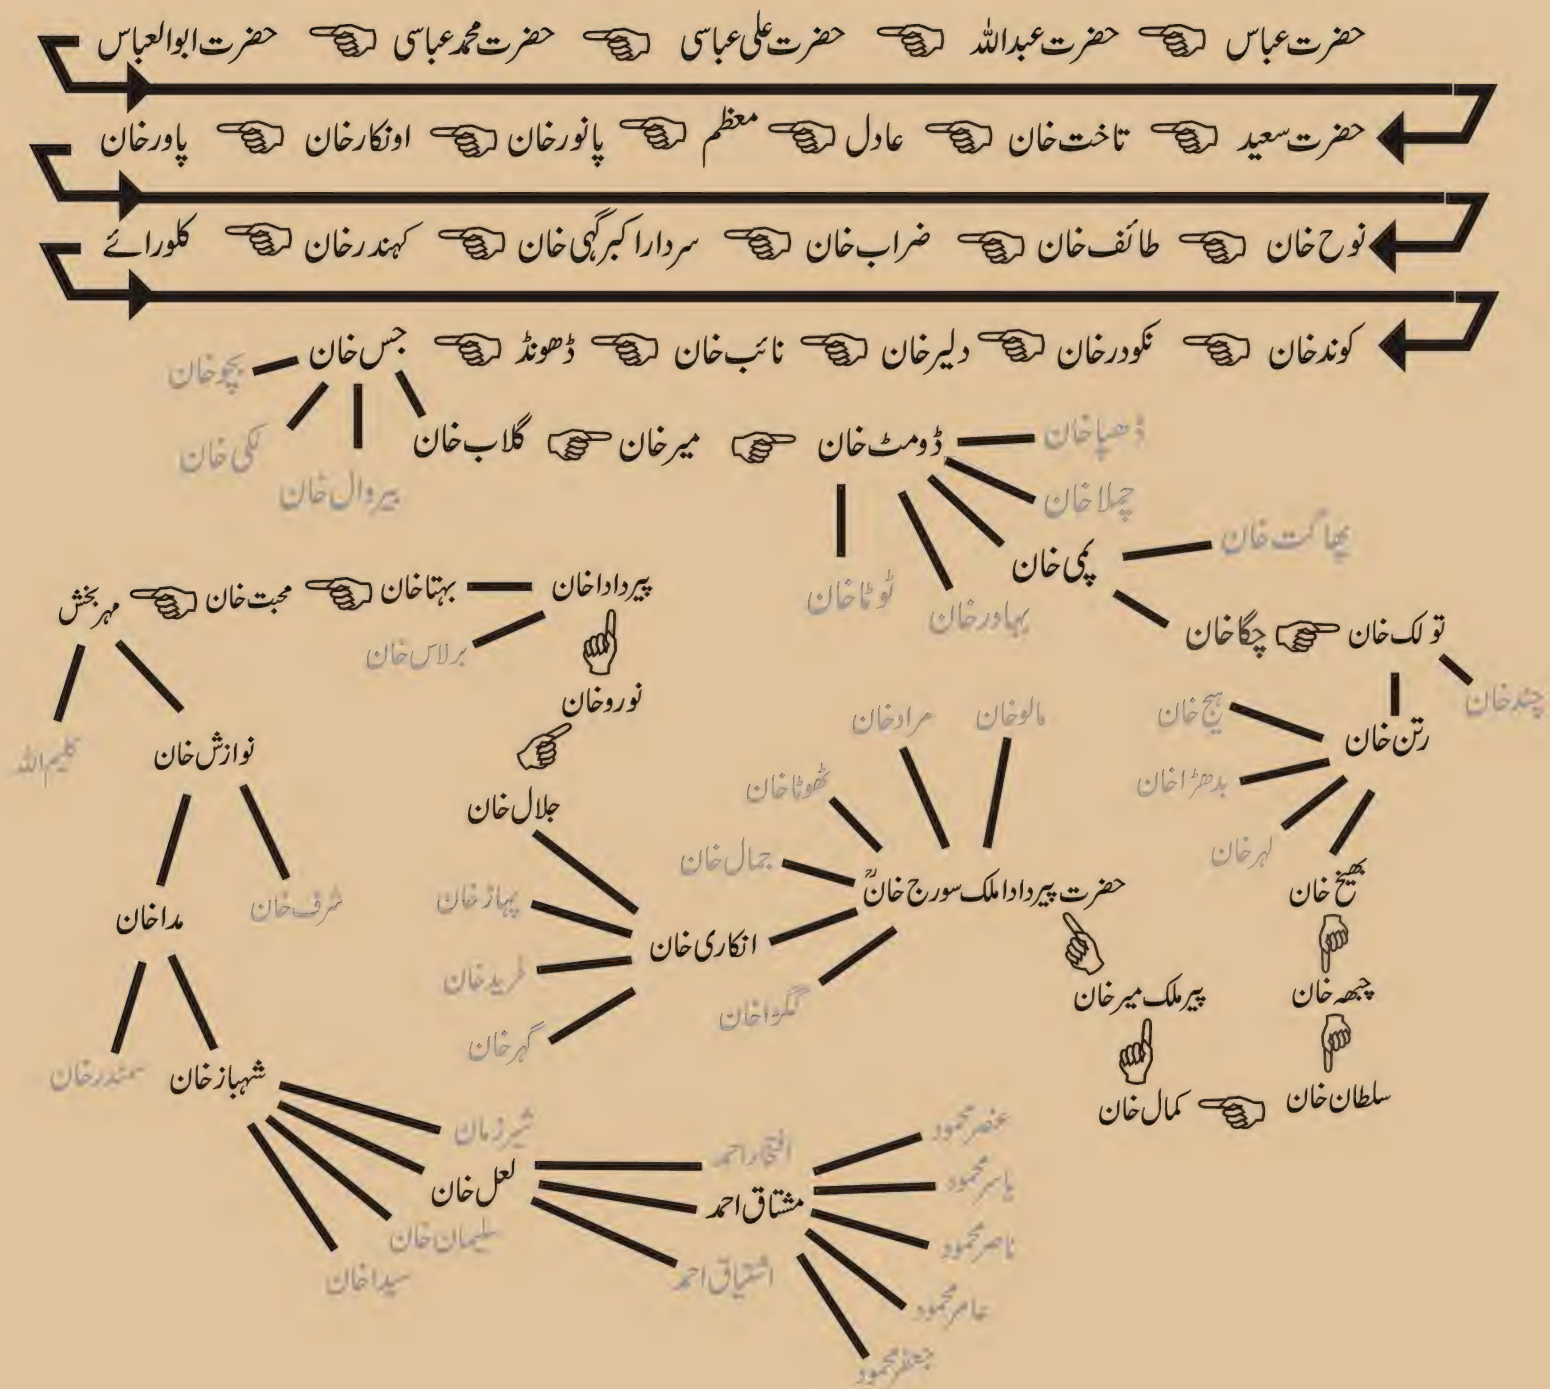 حضرت عباس حضرت عبداللہ حضرت علی عباسی حضرت محمد عباسی حضرت ابوالعباس
حضرت سعید تاخت خان عادل معظم پانور خان اونکار خان پاور خان
نوح خان طائف خان ضراب خان سردار اکبر گہی خان کہندر خان کلورائے
کوند خان نکودر خان دلیر خان نائب خان ڈھونڈ جس خان
بچو خان
لکی خان
بیروال خان
گلاب خان میر خان ڈومٹ خان
ڈھپا خان
چملا خان
پمی خان
بہادر خان
ٹوٹا خان
بھاگت خان
چگا خان تولک خان
چند خان
رتن خان
ہیچ خان
بدھڑا خان
لہر خان
بھیخ خان
چبھہ خان
سلطان خان
کمال خان
پیر ملک میر خان
حضرت پیر دادا ملک سورج خانؒ
مالو خان
مراد خان
ٹھوٹا خان
جمال خان
انکاری خان
گگڑا خان
پہاڑ خان
فرید خان
گہر خان
جلال خان
نورو خان
پیر دادا خان
برلاس خان
بہتا خان محبت خان مہر بخش
کلیم اللہ
نوازش خان
شرف خان
مدا خان
سمندر خان
شہباز خان
شیر زمان
لعل خان
سلیمان خان
سیدا خان
افتخار احمد
مشتاق احمد
اشتیاق احمد
عنصر محمود
یاسر محمود
ناصر محمود
عامر محمود
جعفر محمود